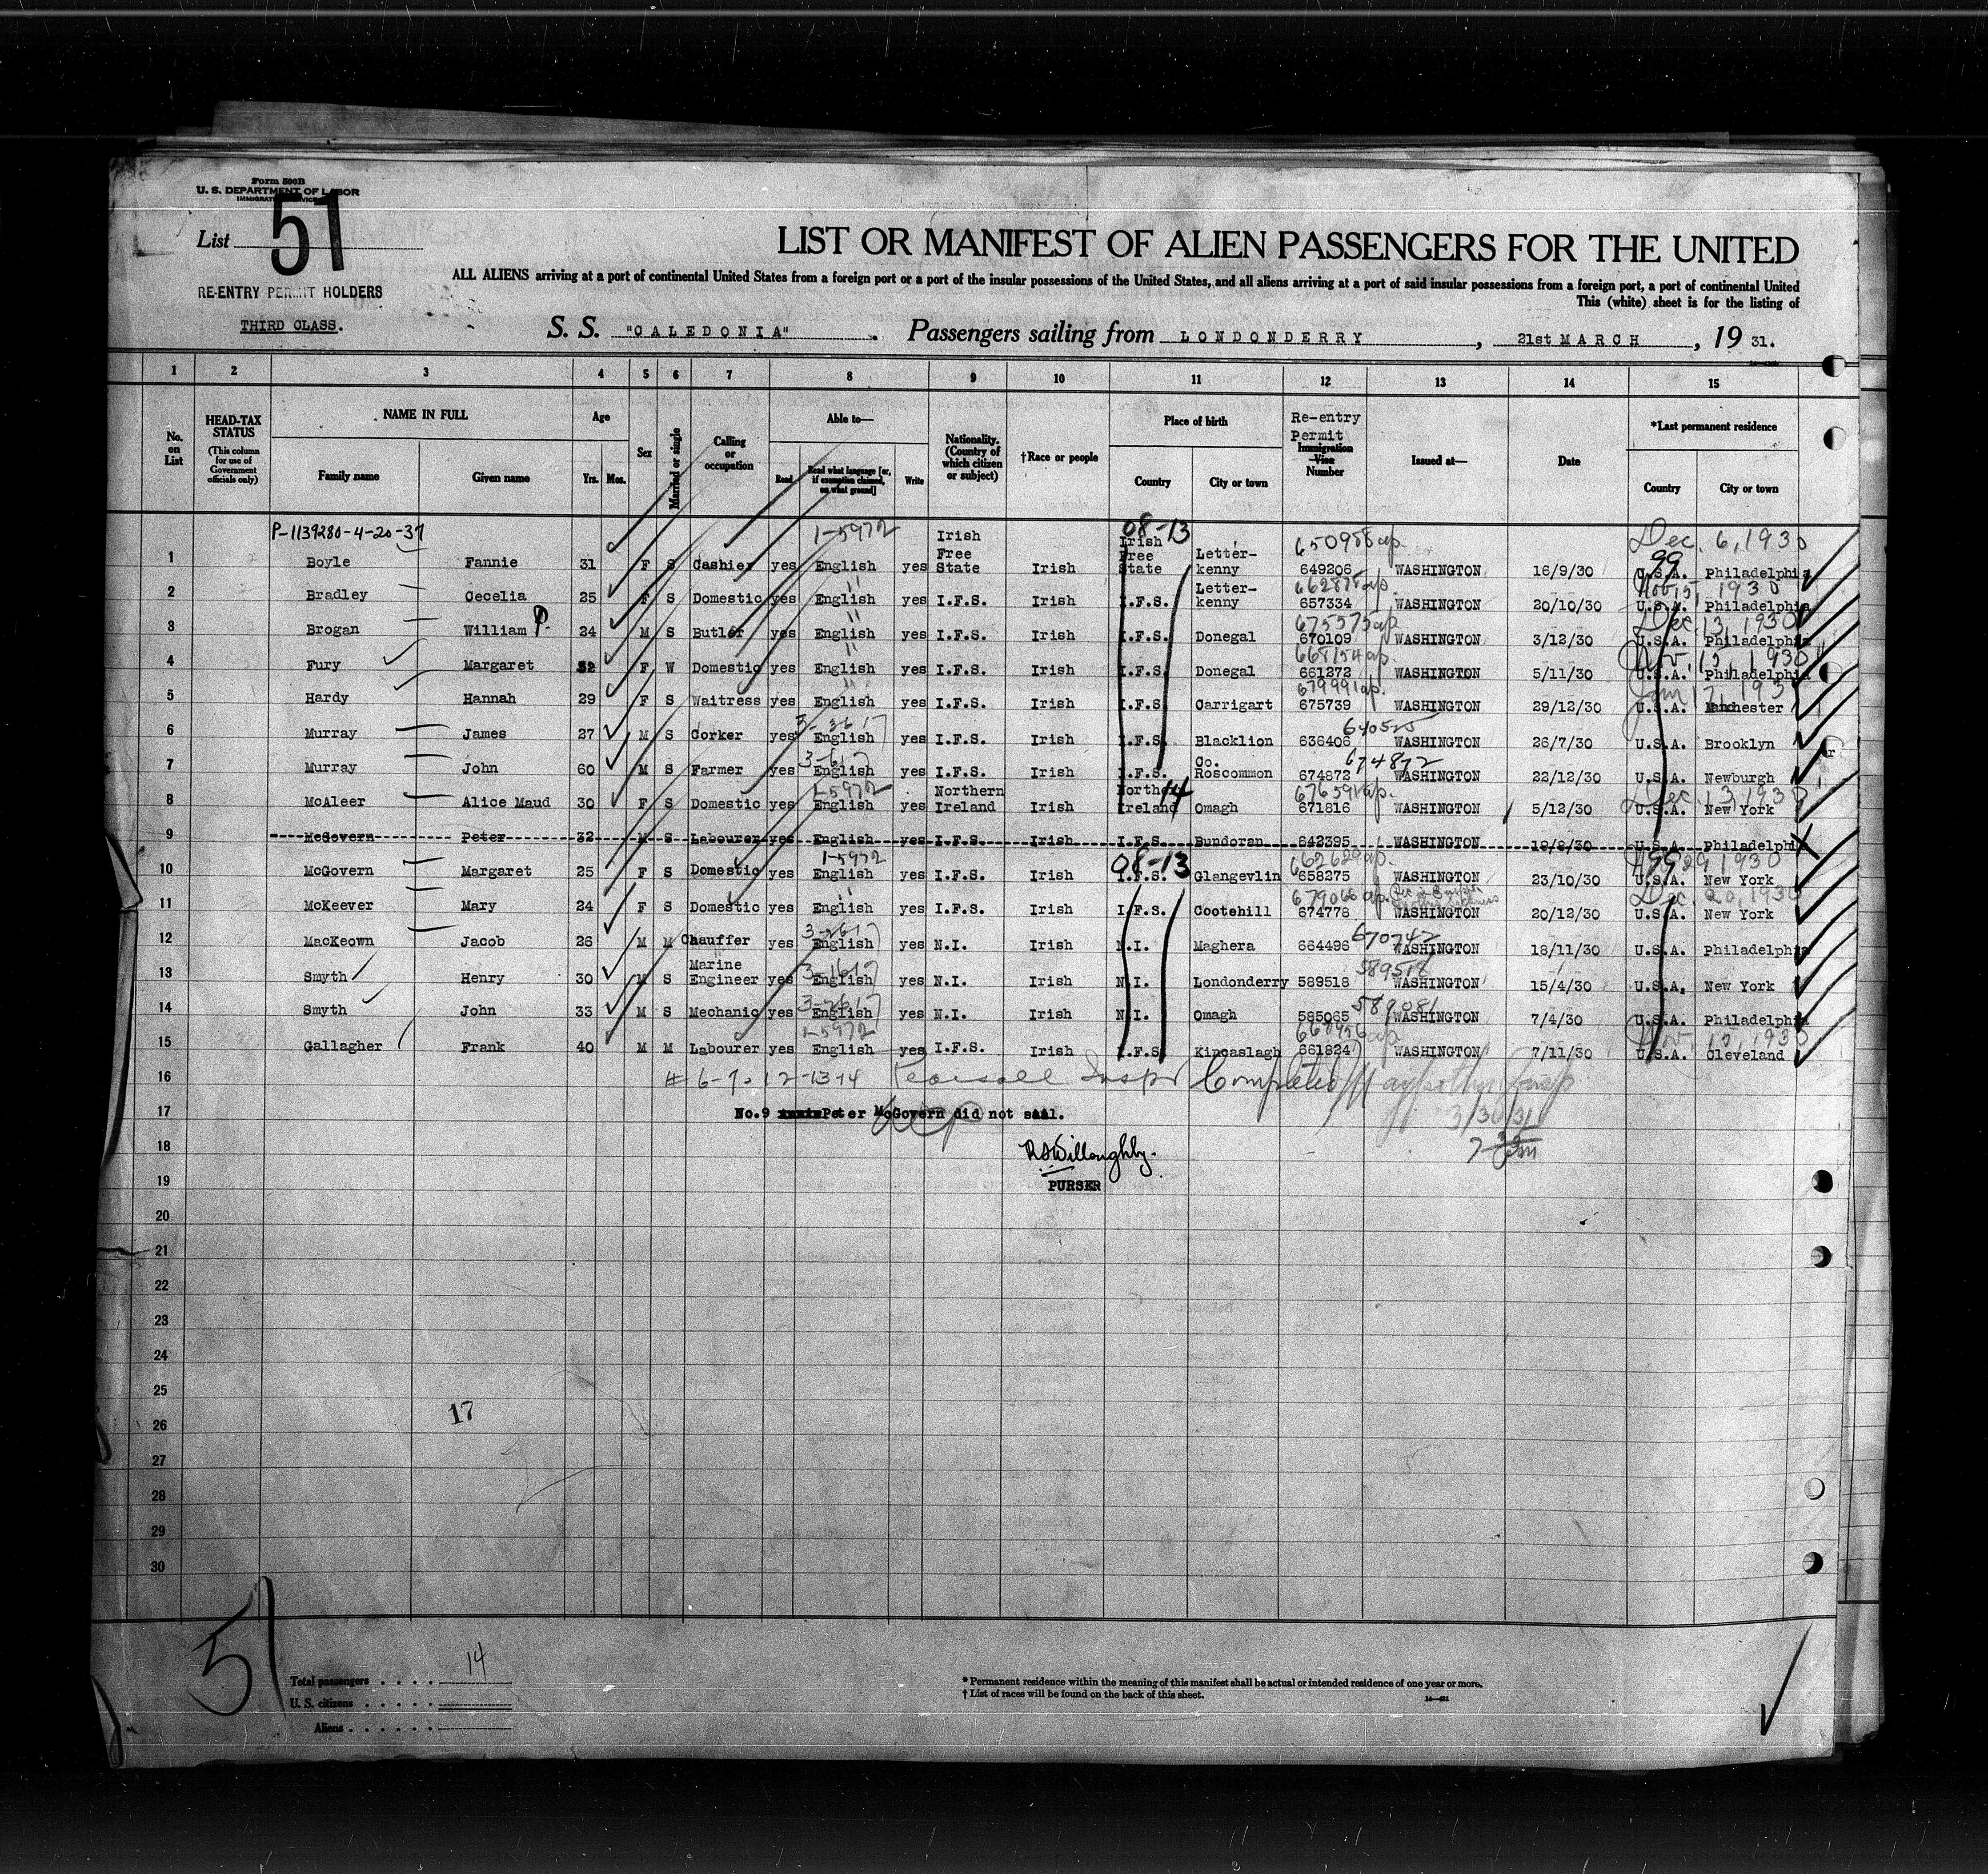 Form 500B
U. S. DEPARTMENT OF LABOR
IMMIGRATION SERVICE
List 51
LIST OR MANIFEST OF ALIEN PASSENGERS FOR THE UNITED
ALL ALIENS arriving at a port of continental United States from a foreign port or a port of the insular possessions of the United States, and all aliens arriving at a port of said insular possessions from a foreign port, a port of continental United
RE-ENTRY PERMIT HOLDERS
This (white) sheet is for the listing of
THIRD CLASS.
S. S. "CALEDONIA". Passengers sailing from LONDONDERRY, 21st MARCH, 19 31.
1 2 3 4 5 6 7 8 9 10 11 12 13 14 15
No. on List
HEAD-TAX STATUS (This column for use of Government officials only)
NAME IN FULL
Family name Given name
Age
Yrs. Mos.
Sex
Married or single
Calling or occupation
Able to—
Read Read what language [or, if exemption claimed, on what ground] Write
Nationality. (Country of which citizen or subject)
†Race or people
Place of birth
Country City or town
Re-entry Permit Immigration Visa Number
Issued at—
Date
*Last permanent residence
Country City or town
P-1139280-4-20-37 1-5972 08-13 650988 ap. Dec. 6, 1930
99
1 Boyle Fannie 31 F S Cashier yes English yes Irish Free State Irish Irish Free State Letter-kenny 649206 WASHINGTON 16/9/30 U.S.A. Philadelphia
" 662878 ap. Nov. 15, 1930
2 Bradley Cecelia 25 F S Domestic yes English yes I.F.S. Irish I.F.S. Letter-kenny 657334 WASHINGTON 20/10/30 U.S.A. Philadelphia
" 675573 ap. Dec. 13, 1930
3 Brogan William P. 24 M S Butler yes English yes I.F.S. Irish I.F.S. Donegal 670109 WASHINGTON 3/12/30 U.S.A. Philadelphia
" 668154 ap. Nov. 15, 1930
4 Fury Margaret 52 F W Domestic yes English yes I.F.S. Irish I.F.S. Donegal 661272 WASHINGTON 5/11/30 U.S.A. Philadelphia
" 679991 ap. Jan 17, 1931
5 Hardy Hannah 29 F S Waitress yes English yes I.F.S. Irish I.F.S. Carrigart 675739 WASHINGTON 29/12/30 U.S.A. Manchester
3-2617 640525
6 Murray James 27 M S Corker yes English yes I.F.S. Irish I.F.S. Blacklion 636406 WASHINGTON 26/7/30 U.S.A. Brooklyn
3-617 674872
7 Murray John 60 M S Farmer yes English yes I.F.S. Irish I.F.S. Co. Roscommon 674872 WASHINGTON 22/12/30 U.S.A. Newburgh
1-5972 14 676591 ap. Dec. 13, 1930
8 McAleer Alice Maud 30 F S Domestic yes English yes Northern Ireland Irish Northern Ireland Omagh 671816 WASHINGTON 5/12/30 U.S.A. New York
9 McGovern Peter 32 M S Labourer yes English yes I.F.S. Irish I.F.S. Bundoran 642395 WASHINGTON 19/8/30 U.S.A. Philadelphia
1-5972 08-13 662620 ap. 29, 1930
99
10 McGovern Margaret 25 F S Domestic yes English yes I.F.S. Irish I.F.S. Glangevlin 658275 WASHINGTON 23/10/30 U.S.A. New York
" 679066 ap. Dec. 20, 1930
11 McKeever Mary 24 F S Domestic yes English yes I.F.S. Irish I.F.S. Cootehill 674778 WASHINGTON 20/12/30 U.S.A. New York
3-2617 670742
12 MacKeown Jacob 26 M M Chauffer yes English yes N.I. Irish N.I. Maghera 664496 WASHINGTON 18/11/30 U.S.A. Philadelphia
3-1617 589518
13 Smyth Henry 30 M S Marine Engineer yes English yes N.I. Irish N.I. Londonderry 589518 WASHINGTON 15/4/30 U.S.A. New York
3-2617 589081
14 Smyth John 33 M S Mechanic yes English yes N.I. Irish N.I. Omagh 585065 WASHINGTON 7/4/30 U.S.A. Philadelphia
1-5972 668956 ap Nov. 15, 1930
15 Gallagher Frank 40 M M Labourer yes English yes I.F.S. Irish I.F.S. Kincaslagh 661824 WASHINGTON 7/11/30 U.S.A. Cleveland
16 # 6-7-12-13-14 Insp Completed
17 No.9 Peter McGovern did not sail. 3/30/31
18 R S Willoughby.
19 PURSER
20
21
22
23
24
25
26
17
27
28
29
30
51
Total passengers . . . . 14
U. S. citizens . . . . .
Aliens . . . . . .
* Permanent residence within the meaning of this manifest shall be actual or intended residence of one year or more.
† List of races will be found on the back of this sheet.